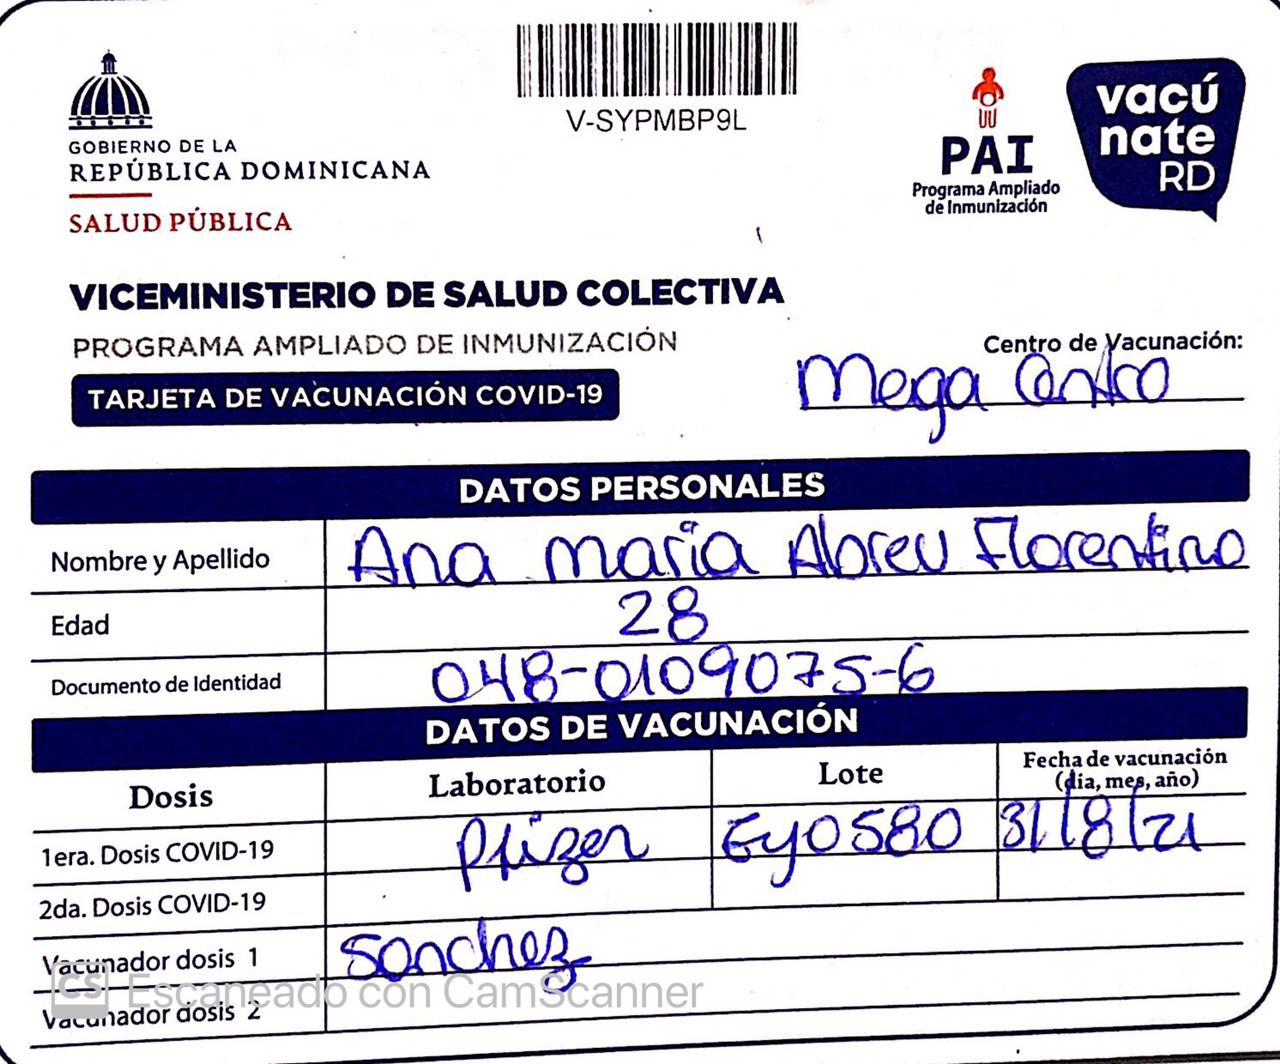 V-SYPMBP9L
GOBIERNO DE LA
REPÚBLICA DOMINICANA
SALUD PÚBLICA
PAI
Programa Ampliado
de Inmunización
vacú
nate
RD
VICEMINISTERIO DE SALUD COLECTIVA
PROGRAMA AMPLIADO DE INMUNIZACIÓN
TARJETA DE VACUNACIÓN COVID-19
Centro de Vacunación:
Mega Centro
DATOS PERSONALES
Nombre y Apellido Ana maria Abreu Florentino
Edad 28
Documento de Identidad 048-0109075-6
DATOS DE VACUNACIÓN
Dosis Laboratorio Lote Fecha de vacunación
(dia, mes, año)
1era. Dosis COVID-19 Pfizer EY0580 31/8/21
2da. Dosis COVID-19
Vacunador dosis 1 Sanchez
Vacunador dosis 2
CS Escaneado con CamScanner